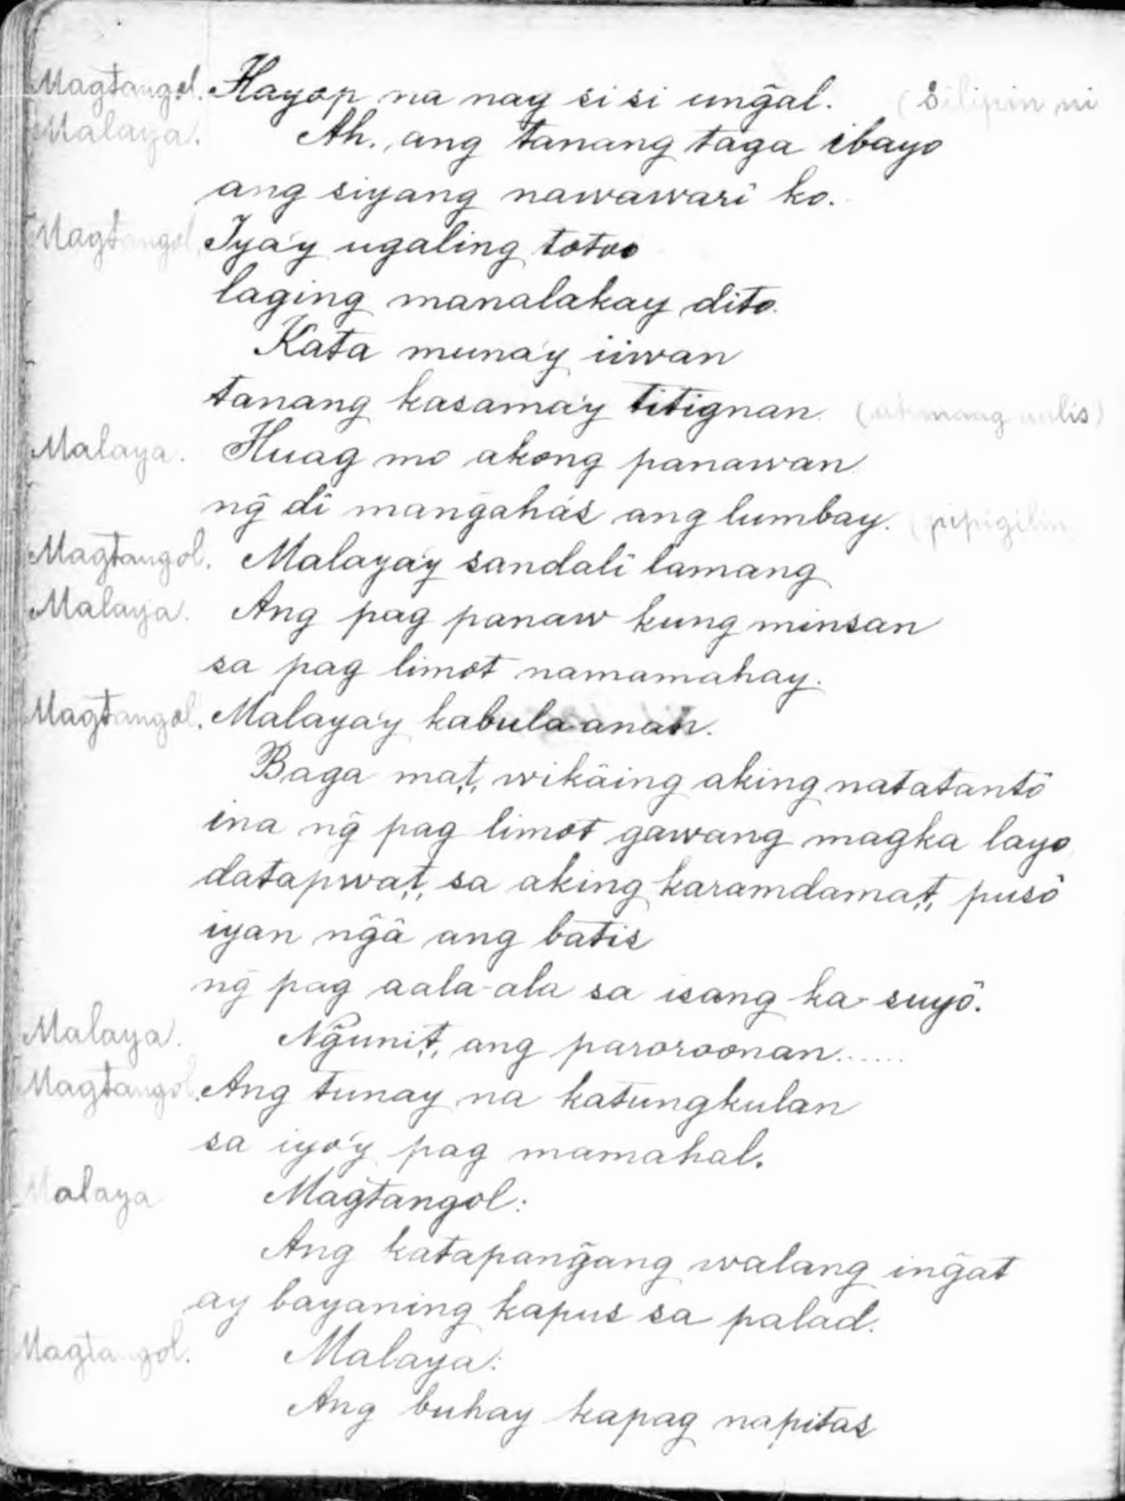 Magtangol. Hayop na nag si si ungãl. (Silipin ni
Malaya. Ah., ang tanang taga ibayo
ang siyang nawawari ko.
Magtangol. Iya'y ugaling totoo
laging manalakay dito.
Kata muna'y iiwan
tanang kasama'y titignan. (akmang aalis)
Malaya. Huag mo akong panawan
ng̃ di mang̃ahás ang lumbay. (pipigilin
Magtangol. Malaya'y sandalî lamang
Malaya. Ang pag panaw kung minsan
sa pag limot namamahay.
Magtangol. Malaya'y kabula-anan.
Baga ma't, wikâing aking natatantô
ina ng̃ pag limot gawang magka layo
datapwa't, sa aking karamdama't, pusô
iyan ng̃â ang batis
ng̃ pag aala-ala sa isang ka-suyô.
Malaya. Ng̃uni't, ang paroroonan......
Magtangol. Ang tunay na katungkulan
sa iyo'y pag mamahal.
Malaya Magtangol:
Ang katapang̃ang walang ing̃at
ay bayaning kapus sa palad.
Magtangol. Malaya:
Ang buhay kapag napitas